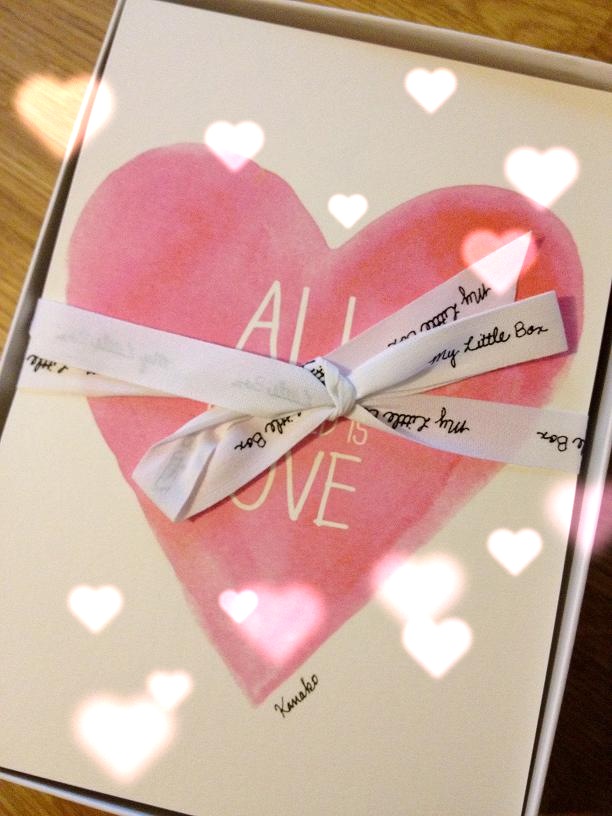 ALL
IS
OVE
my Little Box
My Little Box
My Little
My Little Box
Little Box
le Box
Kanako